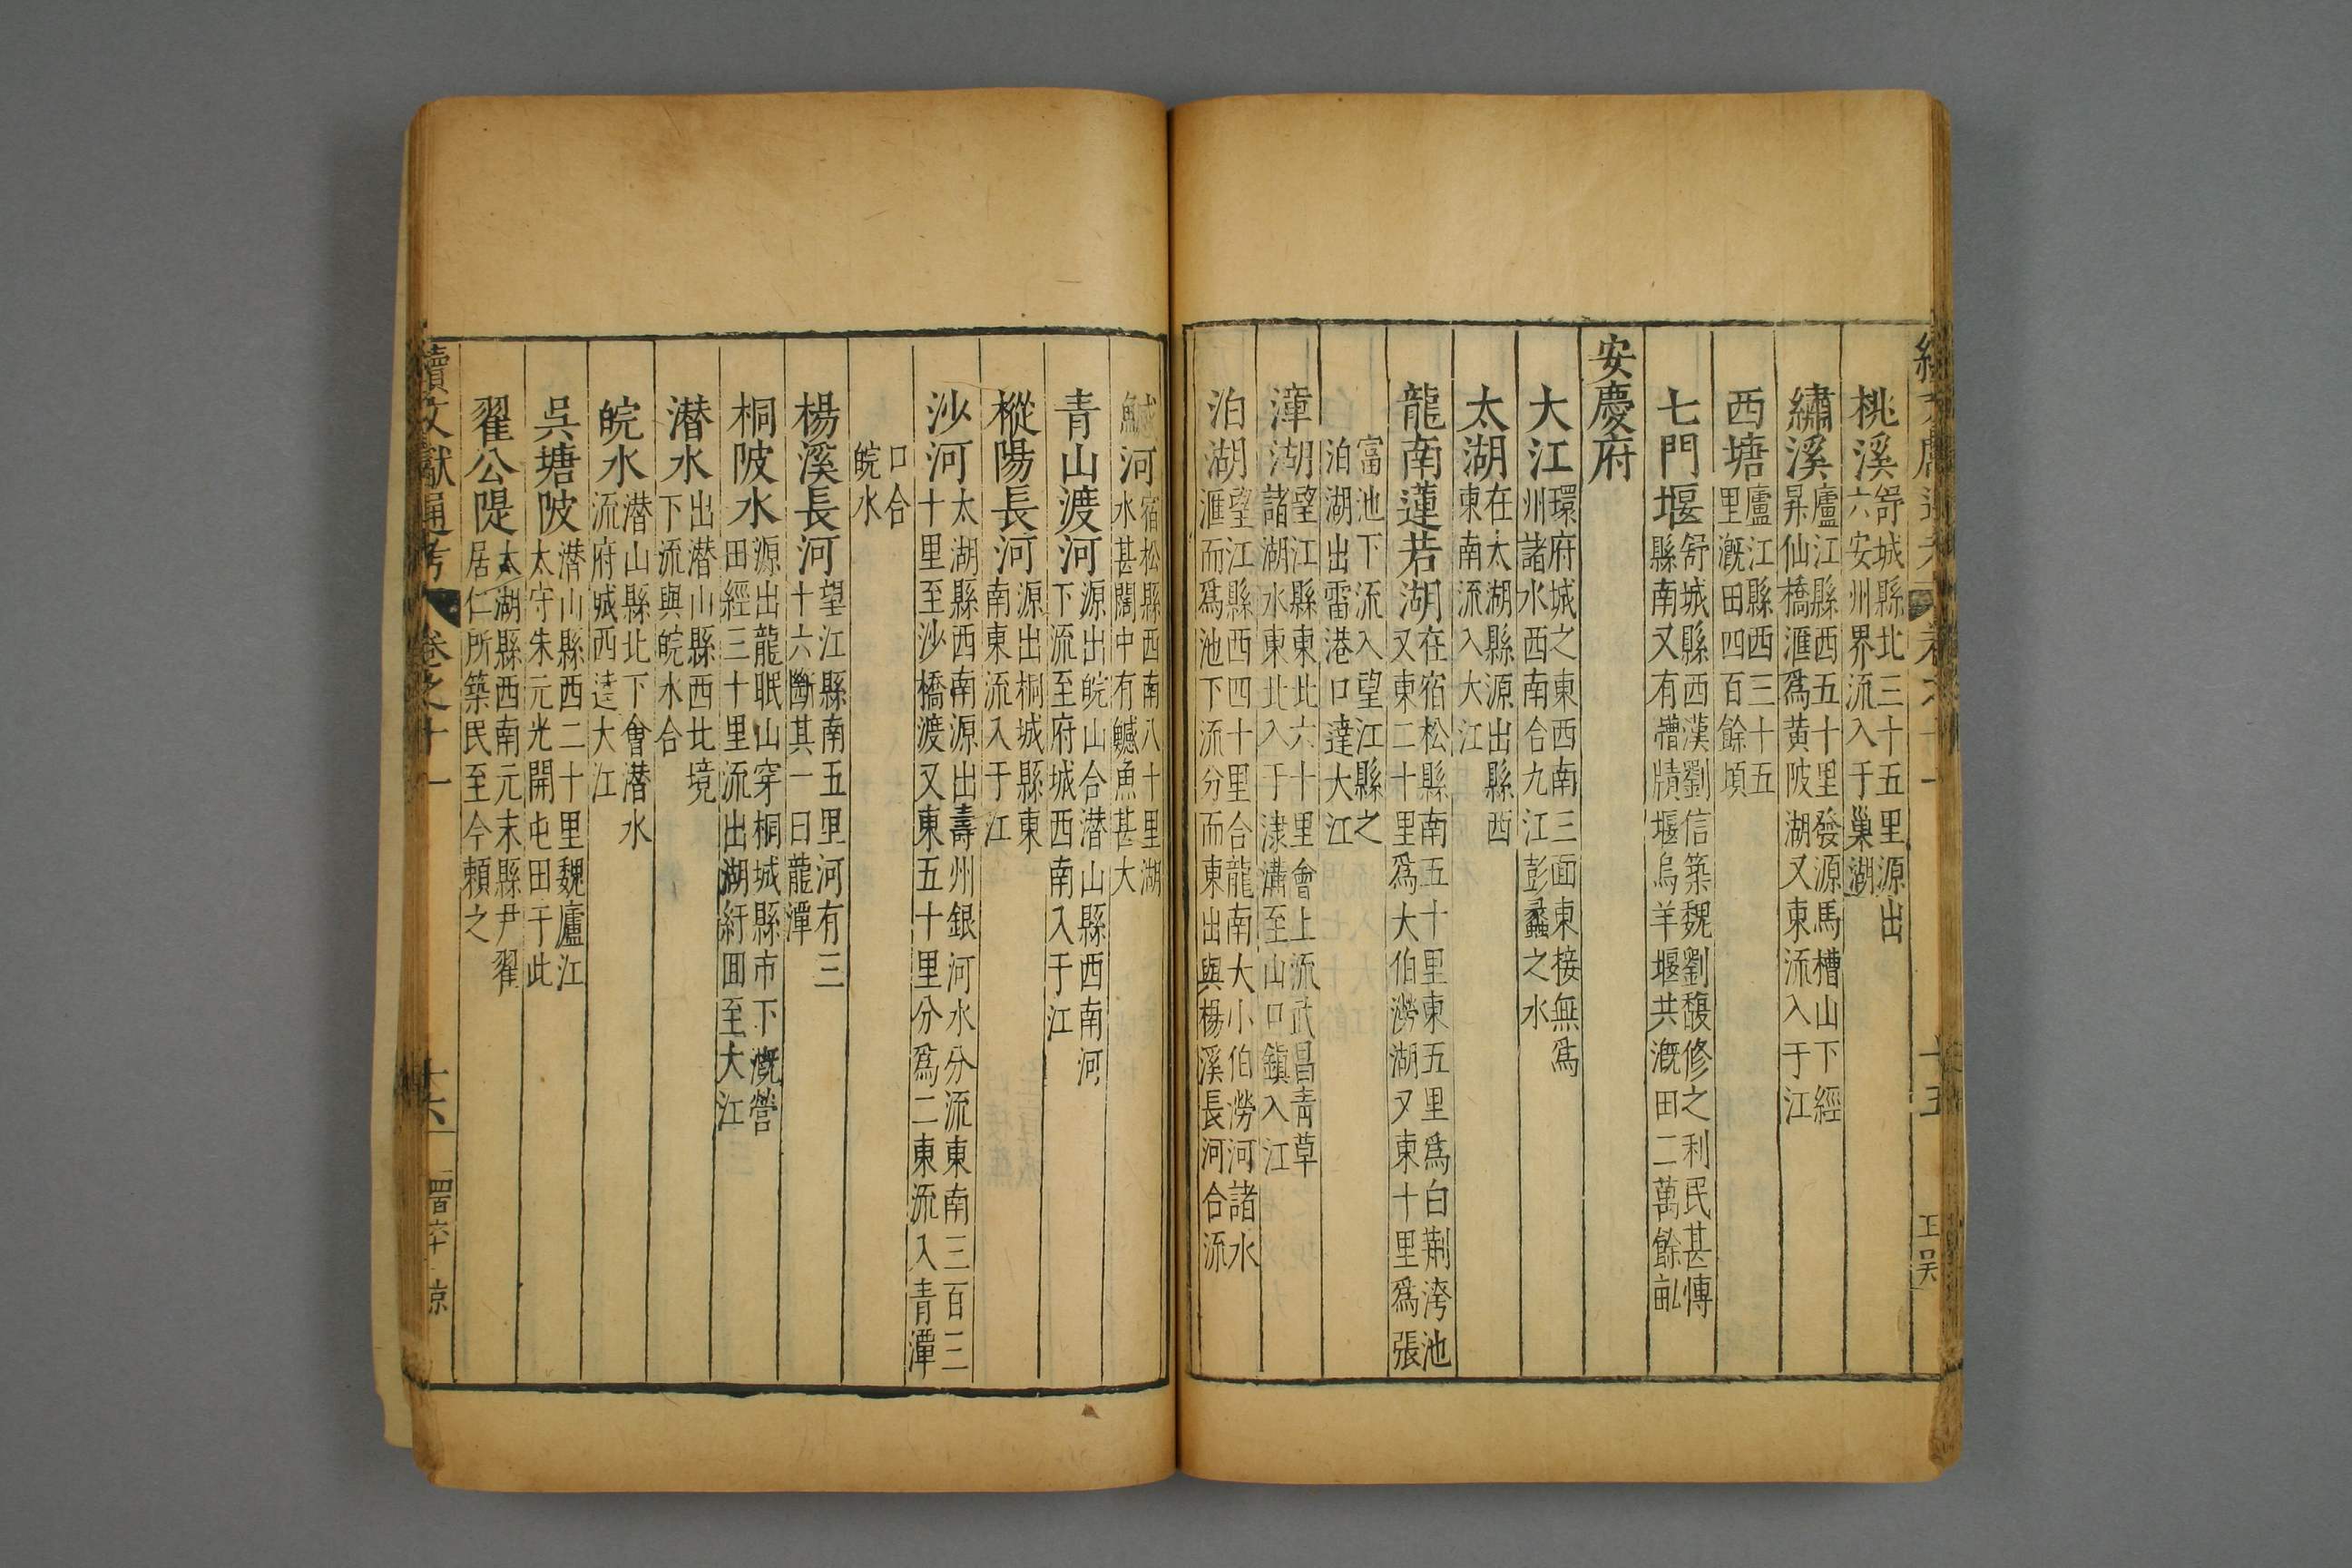 桃溪舒城縣北三十五里源出六安州界流入于巢湖
繡溪廬江縣西五十里發源馬槽山下經昇仙橋滙爲黄陂湖又東流入于江
西塘廬江縣西三十五里漑田四百餘頃
七門堰舒城縣西漢劉信築魏劉馥修之利民甚慱縣南又有䄚牘堰烏羊堰共漑田二萬餘畝
安慶府
大江環府城之東西南三面東接無爲州諸水西南合九江彭蠡之水
太湖在太湖縣源出縣西東南流入大江
龍南蓮若湖在宿松縣南五十里東五里爲白荆洿池又東二十里爲大伯澇湖又東十里爲張
富池下流入望江縣之泊湖出雷港口達大江
漳湖望江縣東北六十里會上流武昌青草諸湖水東北入于溝至山口鎮入江
泊湖望江縣西四十里合龍南大小伯澇河諸水滙而爲池下流分而東出與楊溪長河合流
鱤河宿松縣西南八十里湖水甚闊中有鱤魚甚大
青山渡河源出皖山合潜山縣西南河下流至府城西南入于江
樅陽長河源出桐城縣東南東流入于江
沙河太湖縣西南源出壽州銀河水分流東南三百二十里至沙橋渡又東五十里分爲二東流入青潭
口合皖水
楊溪長河望江縣南五里河有三十六斷其一曰龍潭
桐陂水源出龍眠山穿桐城縣市下漑營田經三十里流出湖紆囬至大江
潜水出潜山縣西北境下流與皖水合
皖水潜山縣北下會潜水流府城西逹大江
吳塘陂潜山縣西二十里魏廬江太守朱元光開屯田于此
翟公隄太湖縣西南元末縣尹翟居仁所築民至今頼之
續文獻通考 卷之十一 十六 四百六十 京